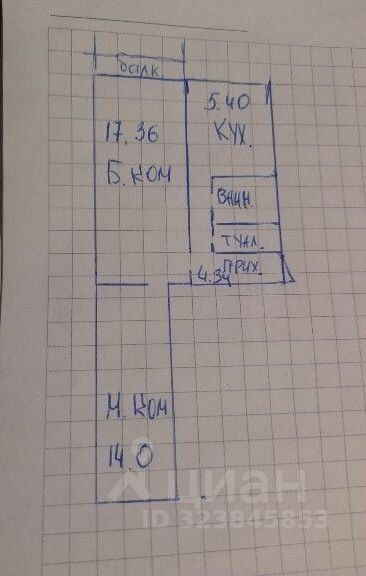 балк.
5.40
КУХ.
17.36
Б. КОМ
ВАНН.
ТУАЛ.
ПРИХ.
4.34
М. КОМ
14.0
циан
ID 323845853